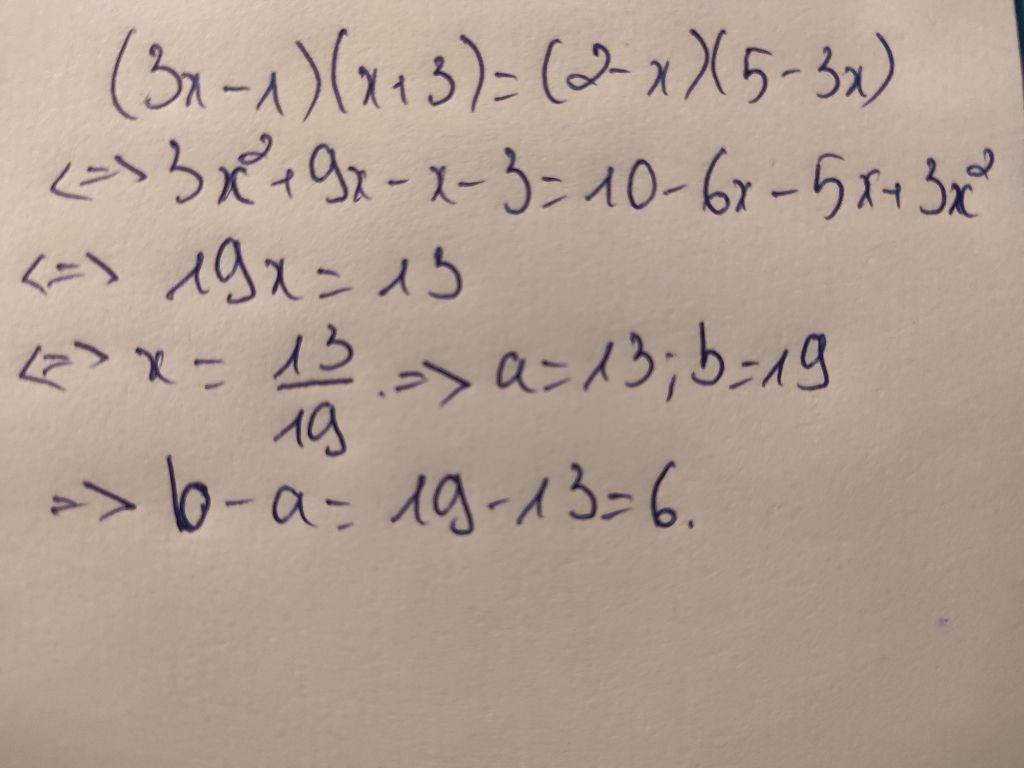 (3x-1)(x+3)=(2-x)(5-3x)
<=> 3x²+9x-x-3=10-6x-5x+3x²
<=> 19x=13
<=> x = 13/19 . => a=13; b=19
=> b-a= 19-13=6.